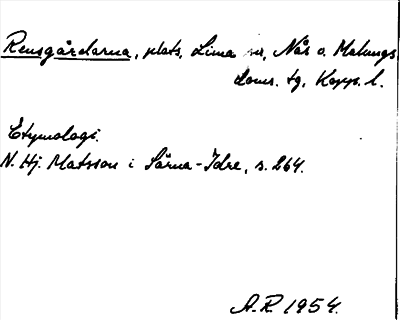 Rensgårdarna, plats, Lima sn, Nås o. Malungs
doms. tg, Kopp. l.
Etymologi.
N. Hj. Matsson i Särna-Idre, s. 264.
A.R 1954.